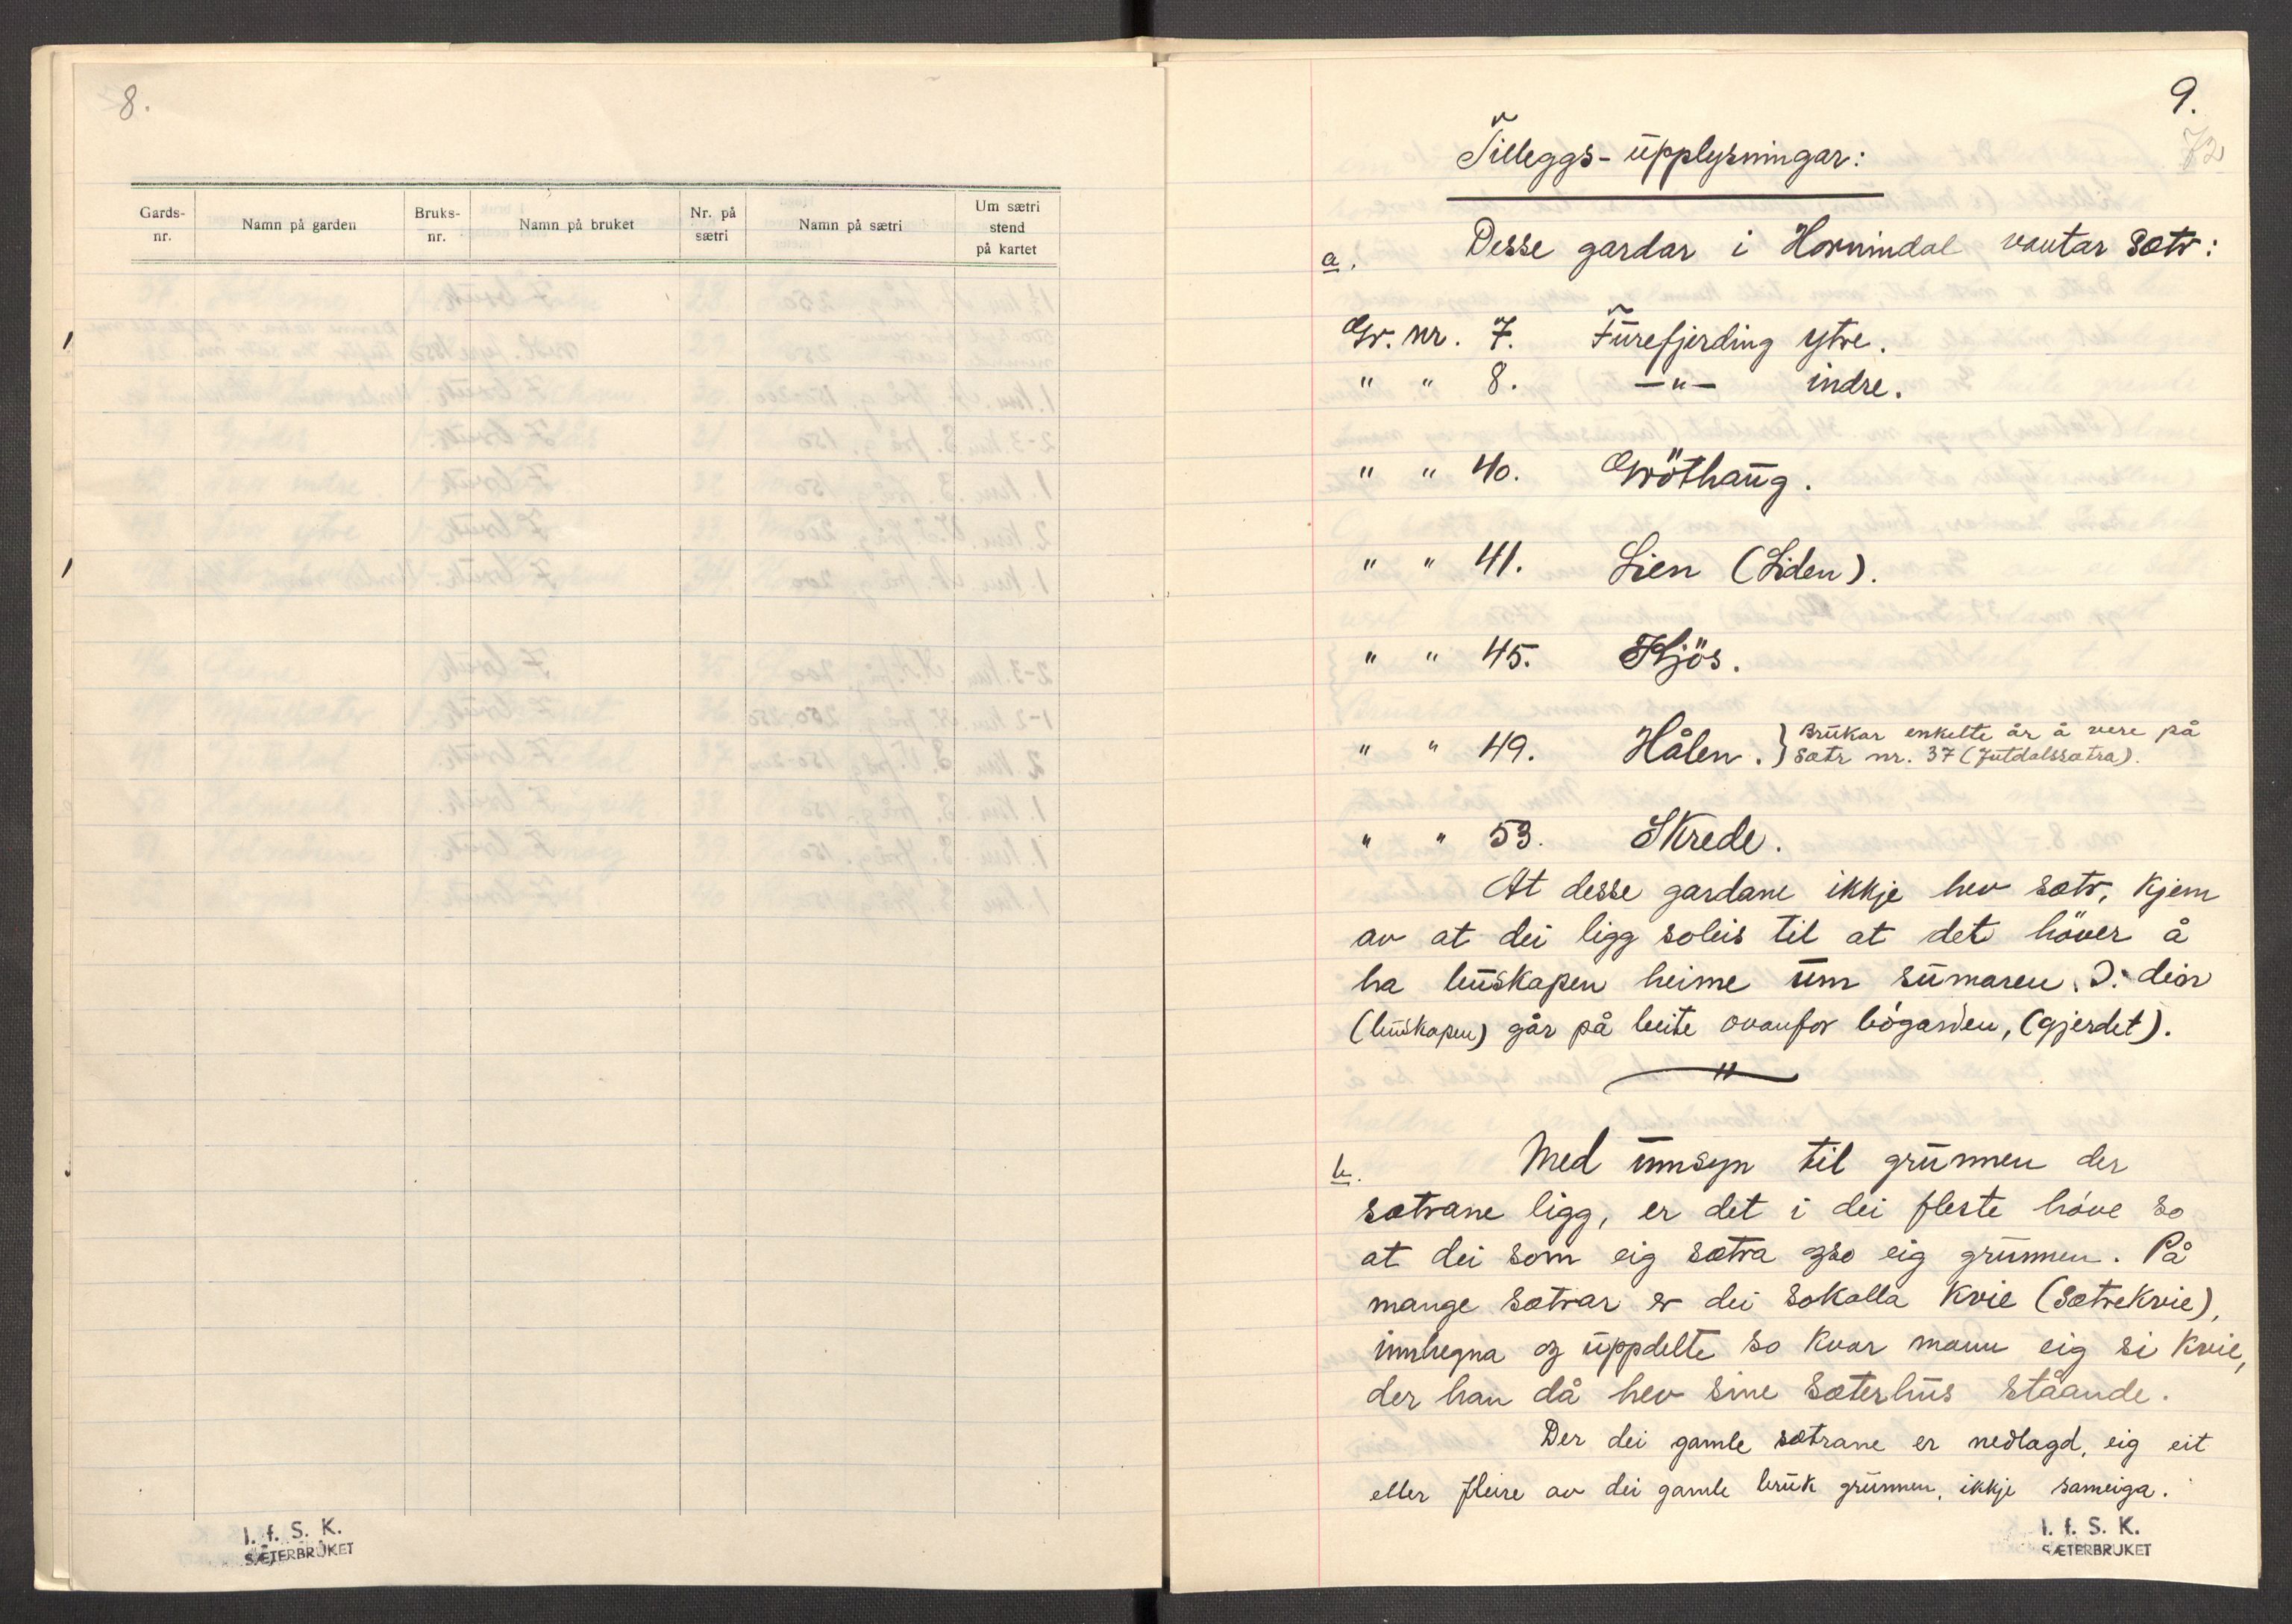 8.
Gards-
nr.
Namn på garden
Bruks-
nr.
Namn på bruket
Nr. på
sætri
Namn på sætri
Um sætri
stend
på kartet
I. f. S. K.
SÆTERBRUKET
9.
72
Tilleggs-upplysningar:
a. Desse gardar i Hornindal vantar sætr:
Gr. nr. 7. Furefjerding ytre.
" " 8. —"— indre.
" " 40. Gröthaug.
" " 41. Lien (Liden).
" " 45. Kjös.
" " 49. Hålen. } Brukar enkelte år å vere på
sætr nr. 37 (Jutdalssætra).
" " 53. Skrede.
At desse gardane ikkje hev sætr, kjem
av at dei ligg soleis til at det höver å
ha buskapen heime um sumaren. D: deir
(buskapen) går på beite ovanfor bögarden, (gjerdet).
"
b. Med umsyn til grunnen der
sætrane ligg, er det i dei fleste höve so
at dei som eig sætra og so eig grunnen. På
mange sætrar er dei sokalla kvie (sætrekvie),
innhegna og uppdelte so kvar mann eig si kvie,
der han då hev sine sæterhus ståande.
Der dei gamle sætrane er nedlagd, eig eit
eller fleire av dei gamle bruk grunnen, ikkje sameiga.
I. f. S. K.
SÆTERBRUKET